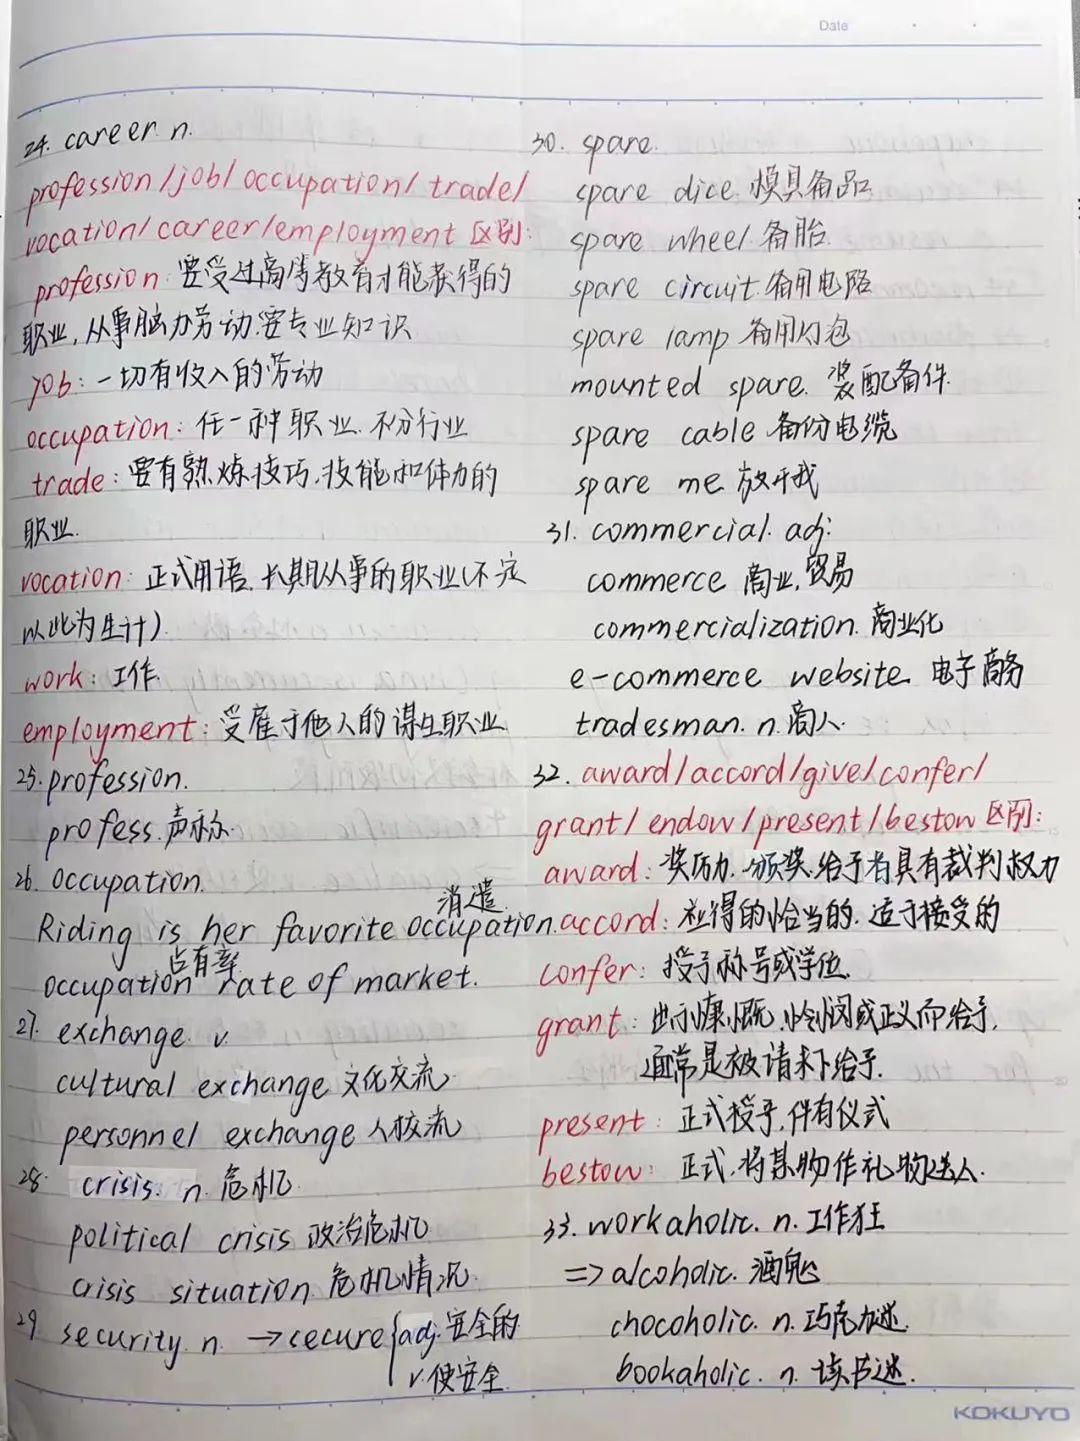 Date
24. career n.
profession/job/occupation/trade/
vocation/career/employment 区别:
profession: 要受过高等教育才能获得的
职业,从事脑力劳动.要专业知识
job: 一切有收入的劳动
occupation: 任一种职业.不分行业
trade: 要有熟炼技巧,技能和体力的
职业.
vocation: 正式用语.长期从事的职业(不定
以此为生计)
work: 工作.
employment: 受雇于他人的谋生职业
25. profession.
profess.声称.
26. occupation.
消遣
Riding is her favorite occupation.
占有率
occupation rate of market.
27. exchange v.
cultural exchange 文化交流.
personnel exchange 人校流
28. crisis. n. 危机.
political crisis 政治危机
crisis situation 危机情况.
29 security n. → secure { adj. 安全的
v. 使安全
30. spare.
spare dice 模具备品
spare wheel. 备胎.
spare circuit. 备用电路
spare lamp 备用灯泡
mounted spare. 装配备件.
spare cable 备份电缆
spare me. 放开我
31. commercial. adj.
commerce 商业,贸易
commercialization. 商业化
e-commerce website. 电子商务
tradesman. n. 商人.
32. award/accord/give/confer/
grant/endow/present/bestow 区别:
award: 奖历力,颁奖.给于者具有裁判权力
accord: 应得的恰当的.适于接受的
confer: 授予称号或学位.
grant: 出示慷慨,怜悯或正义而给予,
通常是被请求下给予.
present: 正式授予,伴有仪式
bestow: 正式.将某物作礼物送人.
33. workaholic. n. 工作狂
=> alcoholic. 酒鬼
chocoholic. n. 巧克力迷.
bookaholic. n. 读书迷.
KOKUYO